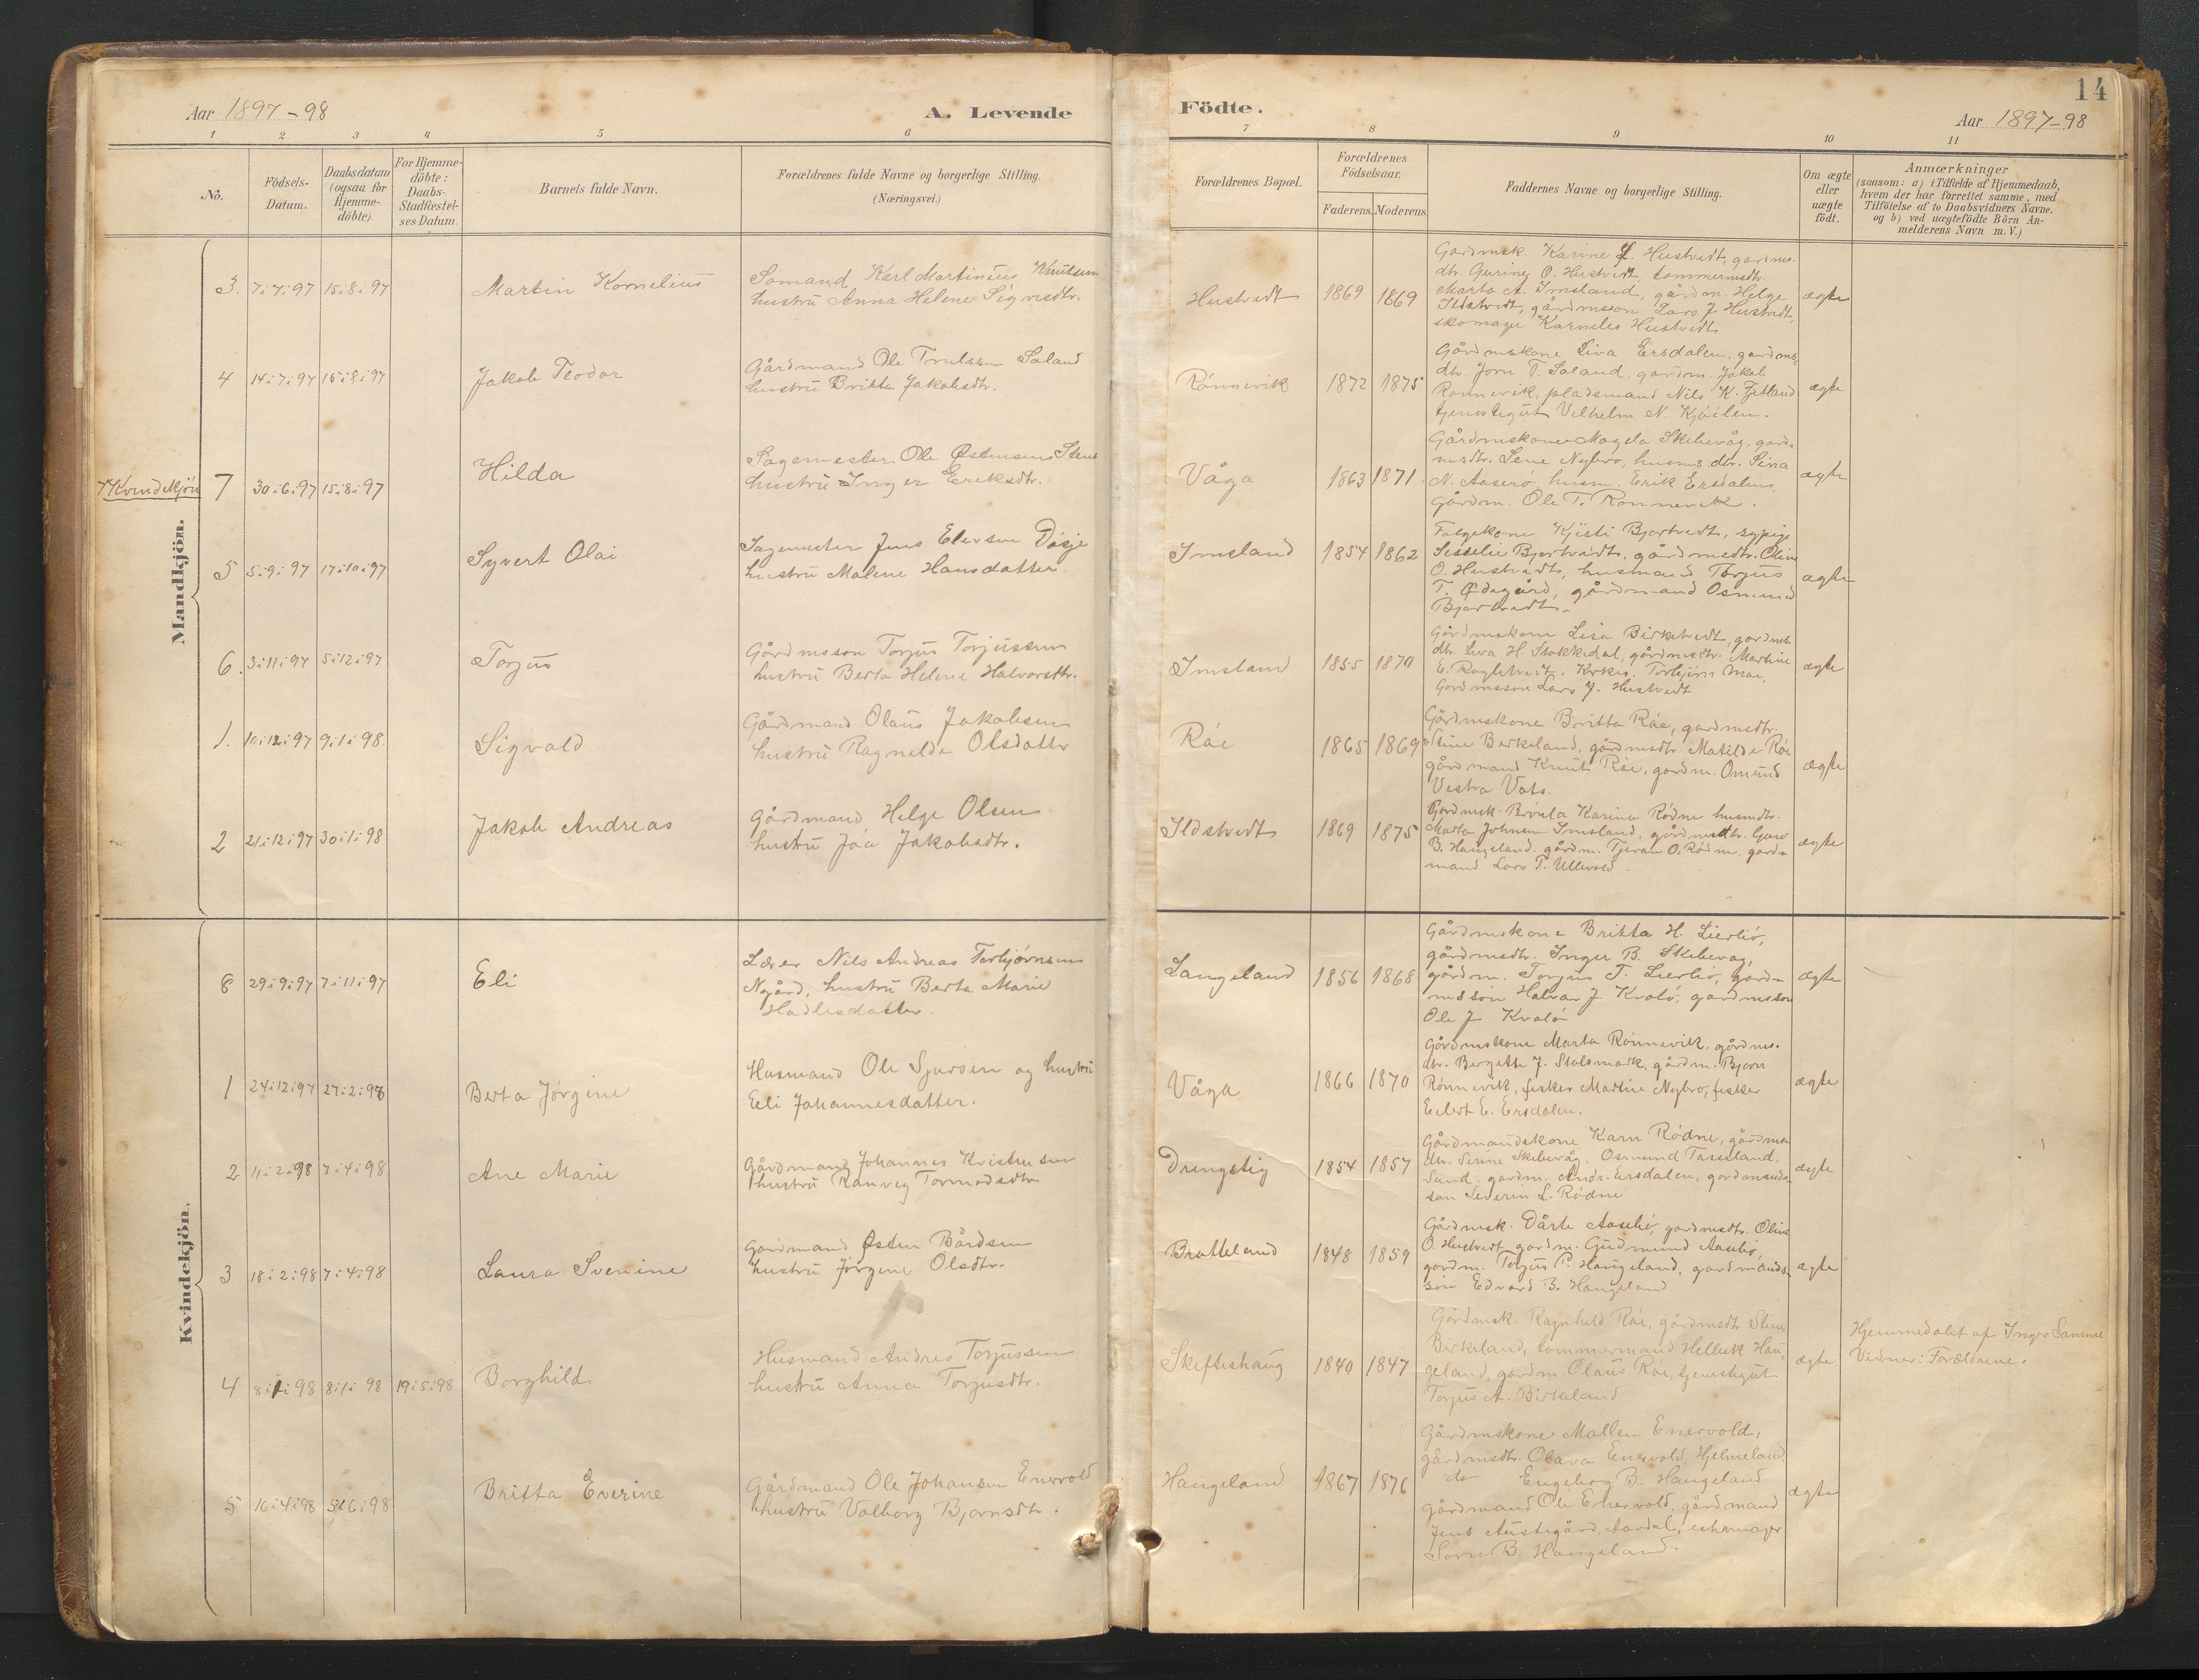 Aar 1897-98
A. Levende
Födte.
14
Aar 1897-98
1 2 3 4 5 6 7 8 9 10 11
No.
Födsels-
Datum.
Daabsdatum
(ogsaa for
Hjemme-
döbte).
For Hjemme-
döbte:
Daabs-
Stadfæstel-
ses Datum.
Barnets fulde Navn.
Forældrenes fulde Navne og borgerlige Stilling.
(Næringsvei.)
Forældrenes Bopæl.
Forældrenes
Födselsaar.
Faderens. Moderens.
Faddernes Navne og borgerlige Stilling.
Om ægte
eller
uægte
födt.
Anmærkninger
(saasom: a) i Tilfælde af Hjemmedaab,
hvem der har forrettet samme, med
Tilföielse af to Daabsvidners Navne,
og b) ved uægtefödte Börn An-
melderens Navn m. V.)
Mandkjön.
3. 7:7:97 15:8:97
Martin Kornelius
Sömand Karl Martinius Knutsen
hustru Anna Helene Sigvisdtr.
Hustvedt 1869 1869
Gardmsk. Karine Hustvedt, gardms.
dtr. Guring O. Hustvedt, tømmermdtr.
Marta A. Imsland, gårdm. Helge
Ildstvedt, gårdmsson Lars J. Hustvedt,
skomager Karneles Hustvedt
ægte
4 14:7:97 15:8:97
Jakob Teodor
Gårdmand Ole Trulssen Saland
hustru Britta Jakobsdtr.
Rønnevik 1872 1875
Gårdmskone Liva Ersdalen, gardms.
dtr. Jorn T. Saland, gardm. Jakob
Rønnevik, pladsmand Nils K.
tjenestegut Vilhelm N. Kjøilen.
ægte
Kvindekjön 7 30:6:97 15:8:97
Hilda
Sagemester Ole Østensen Stene
hustru Inger Eriksdtr.
Våga 1863 1871
Gårdmskone Magela Skibevåg, gard-
msdtr. Lene Nybro, husms dtr. Sina
N. Aaserø, husm. Erik Ersdalen,
Gårdm. Ole T. Rønnevik.
ægte
5 5:9:97 17:10:97
Syvert Olai
Sagemester Jens Elevsen Døsje
hustru Malene Hansdatter
Imsland 1854 1862
Kjisti Bjortvedt, sypige
Sesselie Bjortvedt, gårdmsdtr. Oline
O. Hustvedt, husmand Torjus
T. Ødegård, gårdmand Osmund
Bjortvedt.
ægte
6. 3:11:97 5:12:97
Torjus
Gårdmsson Torjus Torjussen
hustru Berta Helene Halvorsdtr.
Imsland 1855 1870
Gårdmskone Lisa Birketvedt, gardms.
dtr. Liva H. Stokkedal, gårdmsdtr. Martine
E. Røgletvedt, Kirkes. Torbjörn Mæ,
Gårdmsson Lars J. Hustvedt
ægte
1. 10:12:97 9:1:98.
Sigvald
Gårdmand Olaus Jakobsen
hustru Ragnelde Olsdattr
Röe 1865 1869
Gårdmskone Britta Röe, gardmsdtr.
Stine Berkeland, gårdmsdtr. Matilde Röe
gårdmand Knut Röe, gardm. Omund
Vestra Vats.
ægte
2 21:12:97 30:1:98
Jakob Andreas
Gårdmand Helge Olsen
hustru Jøa Jakobsdtr.
Ildstvedt 1869 1875
Gardmsk. Karina Rødne husmdtr.
Marta Johnsen Imsland, gårdmsdtr. Guro
B. Haugeland. gårdm. Tjeran O. Rödne, gard-
mand Lars T. Ullevold
ægte
Kvindekjön.
8 29:9:97 7:11:97
Eli
Lærer Nils Andreas Torbjørnsen
Nøgård, hustru Berta Marie
Hadlesdatter.
Langeland 1856 1868
Gårdmskone Britta H. Lierliö,
gårdmsdtr. Inger B. Skibevag,
gårdm. Torjus T. Lierliö, gard-
mssön Halvar J. Kvalö, gardmsson
Ole J. Kvalö
ægte
1 24:12:97 27:2:98
Berta Jørgine
Husmand Ole Sjursen og hustru
Eli Johannesdatter.
Våga 1866 1870
Gårdmskone Marta Rønnevik, gårdms.
dtr. Bergette J. Stolsmark, gårdm. Bjørn
Rønnevik, fisker Martin Nybro, fisker
Eilert E. Ersdalen.
ægte
2 11:2:98 7:4:98
Ane Marie
Gårdmand Johannes Kristensen
hustru Ranveig Tormodsdtr
Drengstig 1854 1857
Gårdmandskone Karn Rödne, gårdms
dtr. Serine Skibevåg, Osmund Tasseland.
Sand. gardm. Andr. Ersdalen, gardmands-
søn Severin L. Rødne
ægte
3 18:2:98 7:4:98
Laura Sverine
Gardmand Østen Bårdsen
hustru Jørgine Olsdtr.
Bratteland 1848 1859
Gårdmsk. Dårte Aaseliö, gardmsdtr. Oline
O. Hustvedt, gardm. Gudmund Aaseliö,
gardm. Torjus P. Haugeland, gardmands-
sön Edvard B. Haugeland
ægte
4 8:1:98 8:1:98 19:5:98
Borghild
Husmand Andres Torjussen
hustru Anna Torjusdtr.
Skifteshaug 1840 1847
Gårdmsk. Ragnhild Röe, gårdmsdtr Stine
Birkeland, tømmermand Helliek Hau-
geland, gardm. Olaus Röe, tjenestegut
Torjus A. Birkeland
ægte
Hjemmedøbt af Inger Samme
Vidner: Forældrene.
5 16:4:98 5:6:98
Britta Everine
Gårdmand Ole Johansen Enervold
hustru Valborg Bjørnsdtr.
Haugeland 1867 1876
Gårdmskone Mallen Enervold,
gårdmsdtr. Olava Enervold, Hjelmeland,
do Engeborg B. Haugeland
gårdmand Ole Enervold, gårdmand
Jens Austigård, Aardal, urmager
Sørn B. Haugeland.
ægte